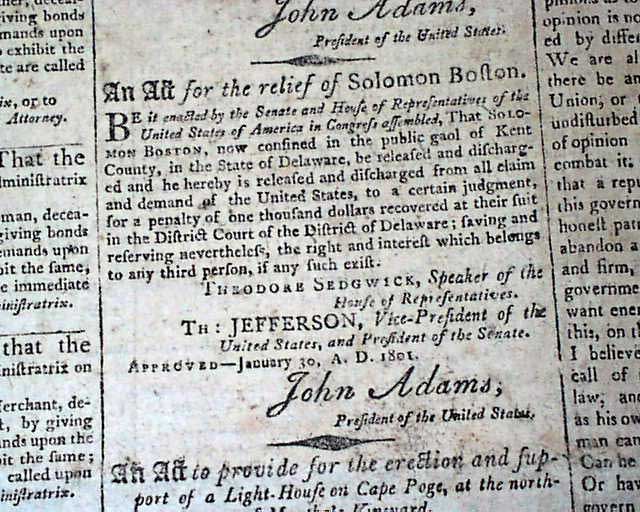 ther, decea-
giving bonds
demands upon
o exhibit the
te are called
ix, or to
Attorney.
That the
dministratrix
man, decea-
giving bonds
emands upon
bit the same,
e immediate
ministratrix.
that the
inistratrix on
Merchant, de-
t, by giving
ands upon the
bit the same;
called upon
inistratrix.
John Adams,
President of the United States.
An Act for the relief of Solomon Boſton.
BE it enacted by the Senate and Houſe of Repreſentatives of the
United States of America in Congreſs aſſembled, That SOLO-
MON BOSTON, now confined in the public gaol of Kent
County, in the State of Delaware, be releaſed and diſcharg-
ed and he hereby is releaſed and diſcharged from all claim
and demand of the United States, to a certain judgment,
for a penalty of one thouſand dollars recovered at their ſuit
in the Diſtrict Court of the Diſtrict of Delaware; ſaving and
reſerving nevertheleſs, the right and intereſt which belongs
to any third perſon, if any ſuch exiſt.
THEODORE SEDGWICK, Speaker of the
Houſe of Repreſentatives.
TH: JEFFERSON, Vice-Preſident of the
United States, and Preſident of the Senate.
APPROVED—January 30, A. D. 1801.
John Adams,
Preſident of the United States.
An Act to provide for the erection and ſup-
port of a Light-Houſe on Cape Poge, at the north-
opinion is no
ed by differ
We are al
there be an
Union, or
undiſturbed
of opinion
combat it:
that a rep
this govern
honeſt patr
abandon a
and firm,
governme
want ener
this, on th
I believe
call of
law, and
as his ow
man can
Can he
Or hav
govern